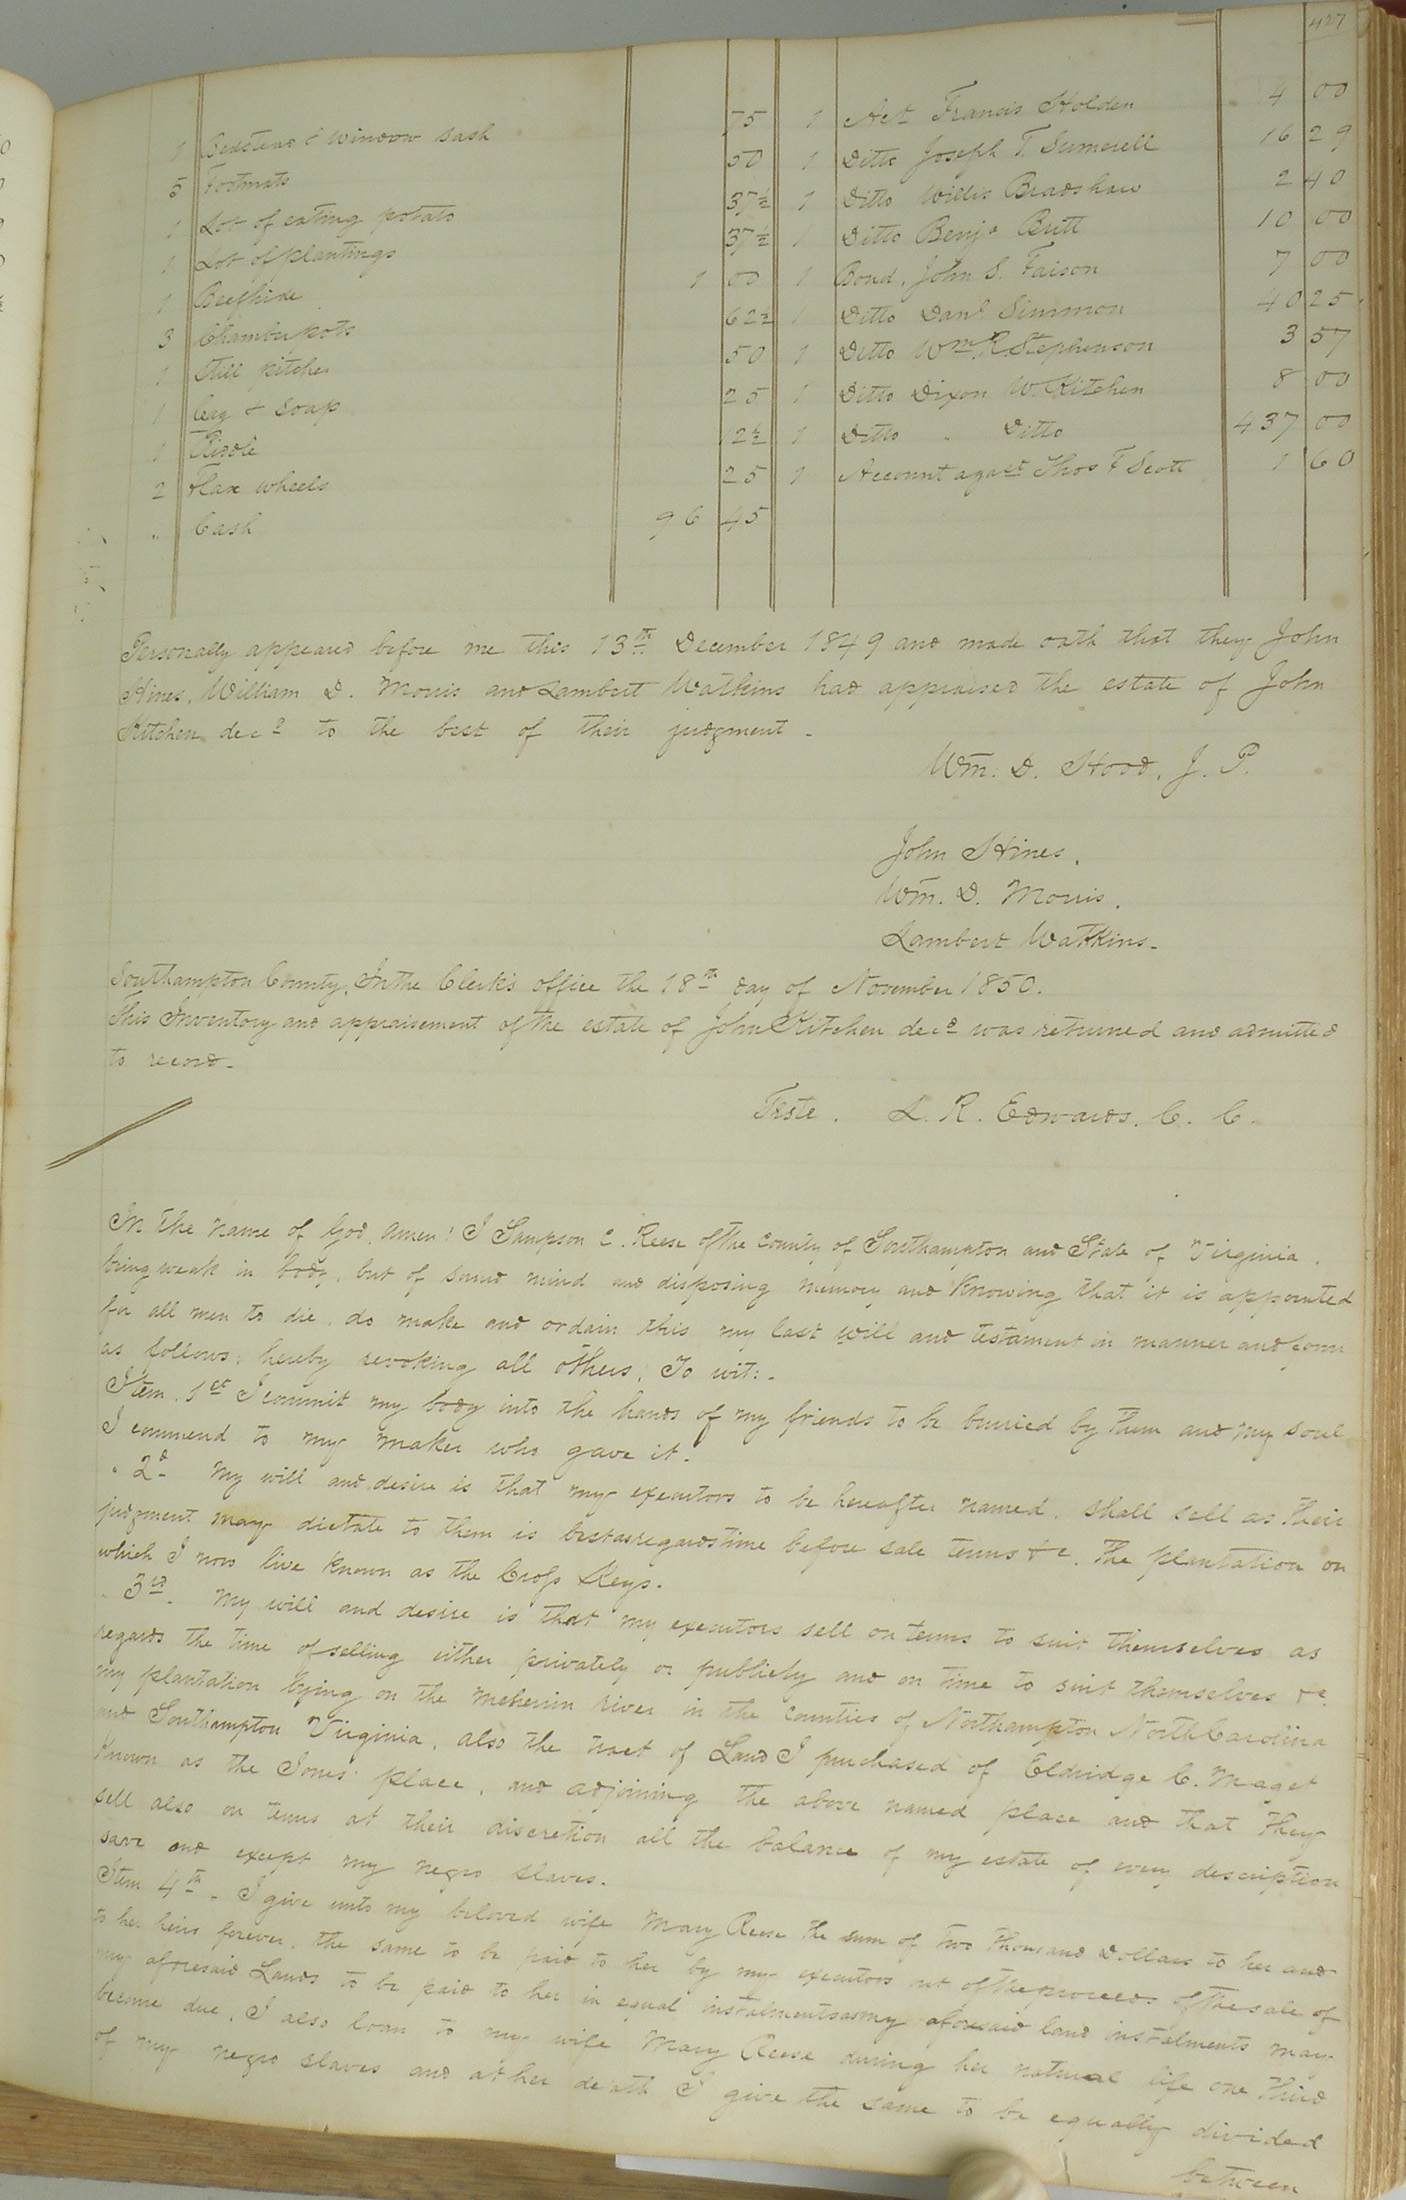 427
1 Bedstead & Window Sash 75 1 Act Francis Holden 4 00
5 Footmats 50 1 Ditto Joseph T. Sumerell 16 29
1 Lot of eating potato 37½ 1 Ditto Willis Bradshaw 2 40
1 Lot of plantings 37½ 1 Ditto Benja Britt 10 00
1 Beefhide 1 00 1 Bond, John S. Faison 7 00
3 Chamberpots 62½ 1 Ditto Danl Simmon 40 25
1 Still pitcher 50 1 Ditto Wm. R. Stephenson 3 57
1 Ceg & Soap 25 1 Ditto Dixon W. Kitchen 8 00
1 Riddle 12½ 1 Ditto " Ditto 437 00
2 Flax Wheels 25 1 Account agast Thos F Scott 1 60
" Cash 96 45
Personally appeared before me this 13th December 1849 and made oath that they John
Hines, William D. Morris and Lambert Watkins had appraised the estate of John
Kitchen decd to the best of their judgment -
Wm. D. Hood, J. P.
John Hines.
Wm. D. Morris.
Lambert Watkins -
Southampton County, In the Clerk's office the 18th day of November 1850.
This Inventory and appraisement of the estate of John Kitchen decd was returned and admitted
to record -
Teste. L. R. Edwards. C. C.
In the name of God, Amen! I Sampson C. Reese of the County of Southampton and State of Virginia.
being weak in body, but of sound mind and disposing memory and Knowing that it is appointed
for all men to die, do make and ordain this my last will and testament in manner and form
as follows, hereby revoking all others, To wit: -
Item. 1st I commit my body into the hands of my friends to be burried by them and my soul
I commend to my maker who gave it -
" 2d - My will and desire is that my executors to be hereafter named, shall sell as their
judgment may dictate to them is best as regards time before sale terms &c. The plantation on
which I now live Known as the Cross Keys.
" 3rd - My will and desire is that my executors sell on terms to suit themselves as
regards the time of selling either privately or publicly and on time to suit themselves &c.
my plantation lying on the Meherrin river in the Counties of Northampton North Carolina
and Southampton Virginia, also the tract of Land I purchased of Eldridge C. Maget
Known as the Jones' place, and adjoining the above named place and that they
sell also on terms at their discretion all the balance of my estate of every description
save and except my negro slaves.
Item 4th - I give unto my beloved wife Mary Reese the sum of two thousand Dollars to her and
to her heirs forever, the same to be paid to her by my executors out of the proceeds of the sale of
my aforesaid Lands to be paid to her in equal instalments as my aforesaid land instalments may
become due, I also loan to my wife Mary Reese during her natural life one third
of my negro slaves and at her death I give the same to be equally divided
between